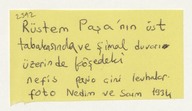 2592
Rüstem Paşa'nın üst
tabakasında ve şimal duvarı
üzerinde köşedeki
nefis pano çini levhalar.
foto Nedim ve Saim 1934